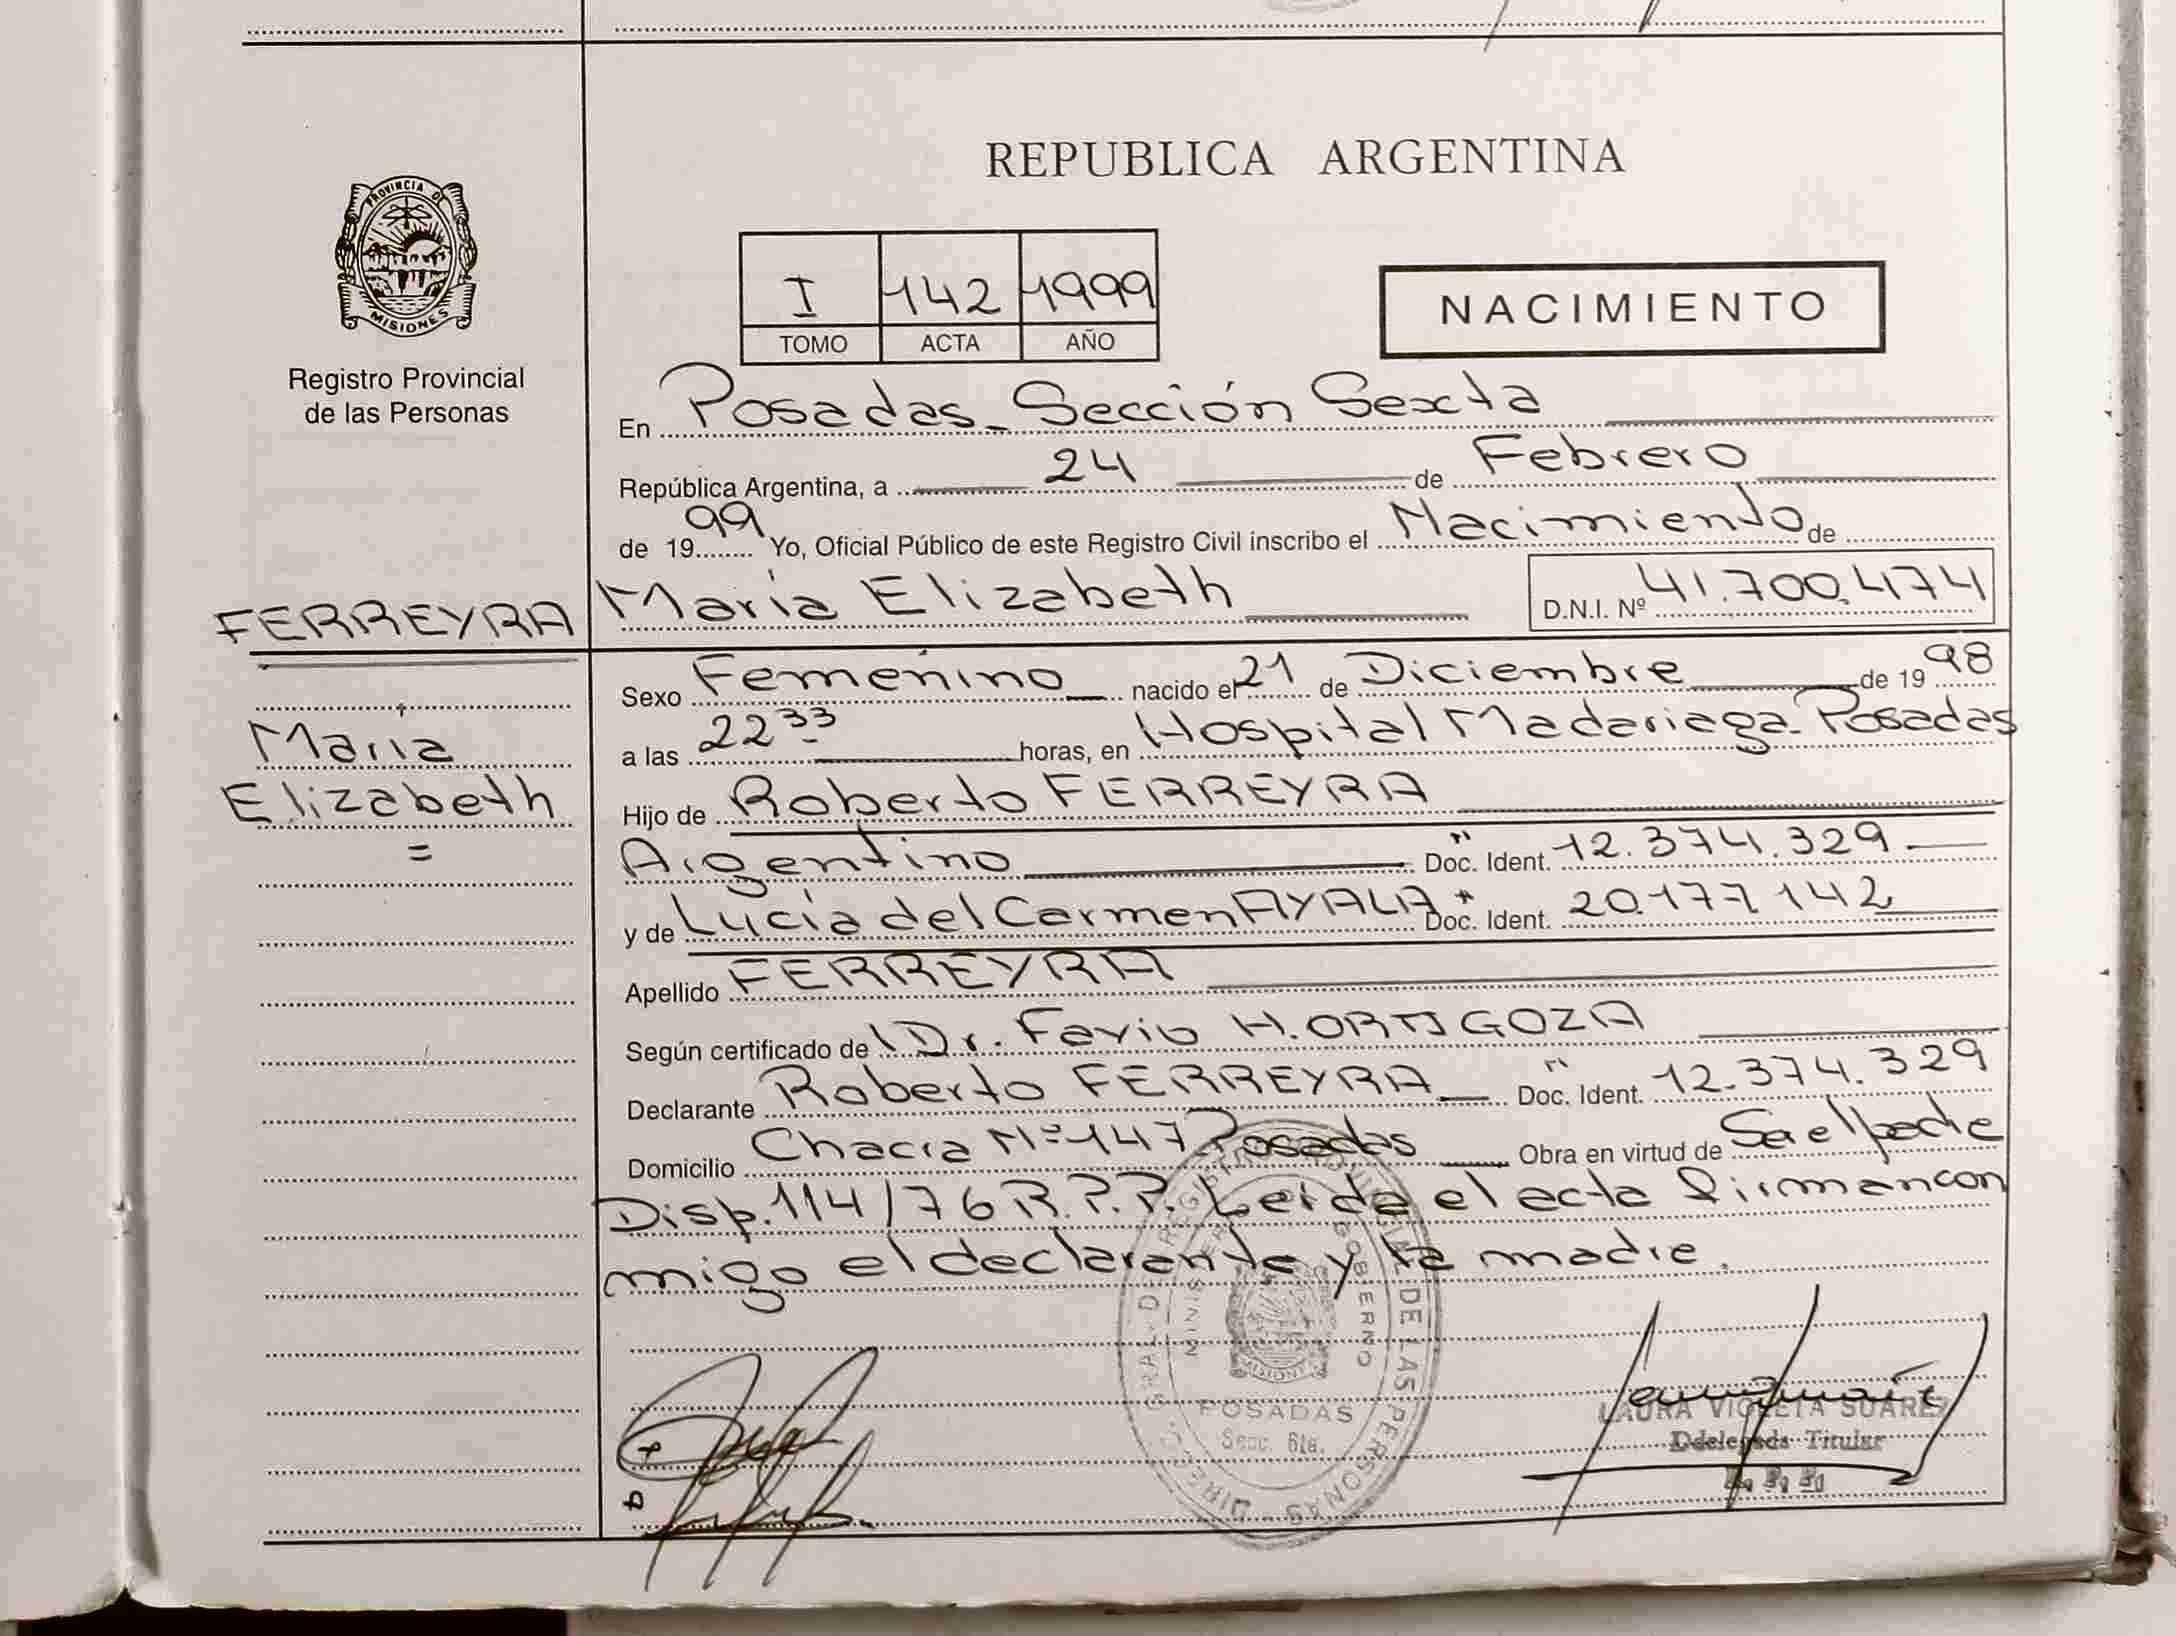 REPUBLICA ARGENTINA
PROVINCIA DE
MISIONES
Registro Provincial
de las Personas
I 142 1999
TOMO ACTA AÑO
NACIMIENTO
En Posadas_ Sección Sexta
República Argentina, a 24 de Febrero
de 1999 Yo, Oficial Público de este Registro Civil inscribo el Nacimiento de
FERREYRA María Elizabeth D.N.I. Nº 41.700.474
Sexo Femenino nacido el 21 de Diciembre de 1998
María
Elizabeth
=
a las 22 33 horas, en Hospital Madariaga_ Posadas
Hijo de Roberto FERREYRA
Argentino Doc. Ident. 12.374.329
y de Lucía del Carmen AYALA Doc. Ident. 20.177.142
Apellido FERREYRA
Según certificado del Dr. Favio H. ORTIGOZA
Declarante Roberto FERREYRA Doc. Ident. 12.374.329
Domicilio Chacra Nº 147 Posadas Obra en virtud de
Disp. 114/76 R.P.P. Leida el acta firman con
migo el declarante y la madre.
DIRECC. GRAL. DE REGISTRO PROVINCIAL DE LAS PERSONAS
MINISTERIO GOBIERNO
MISIONES
POSADAS
Secc. 6ta.
LAURA VIOLETA SUAREZ
Ddelegada Titular